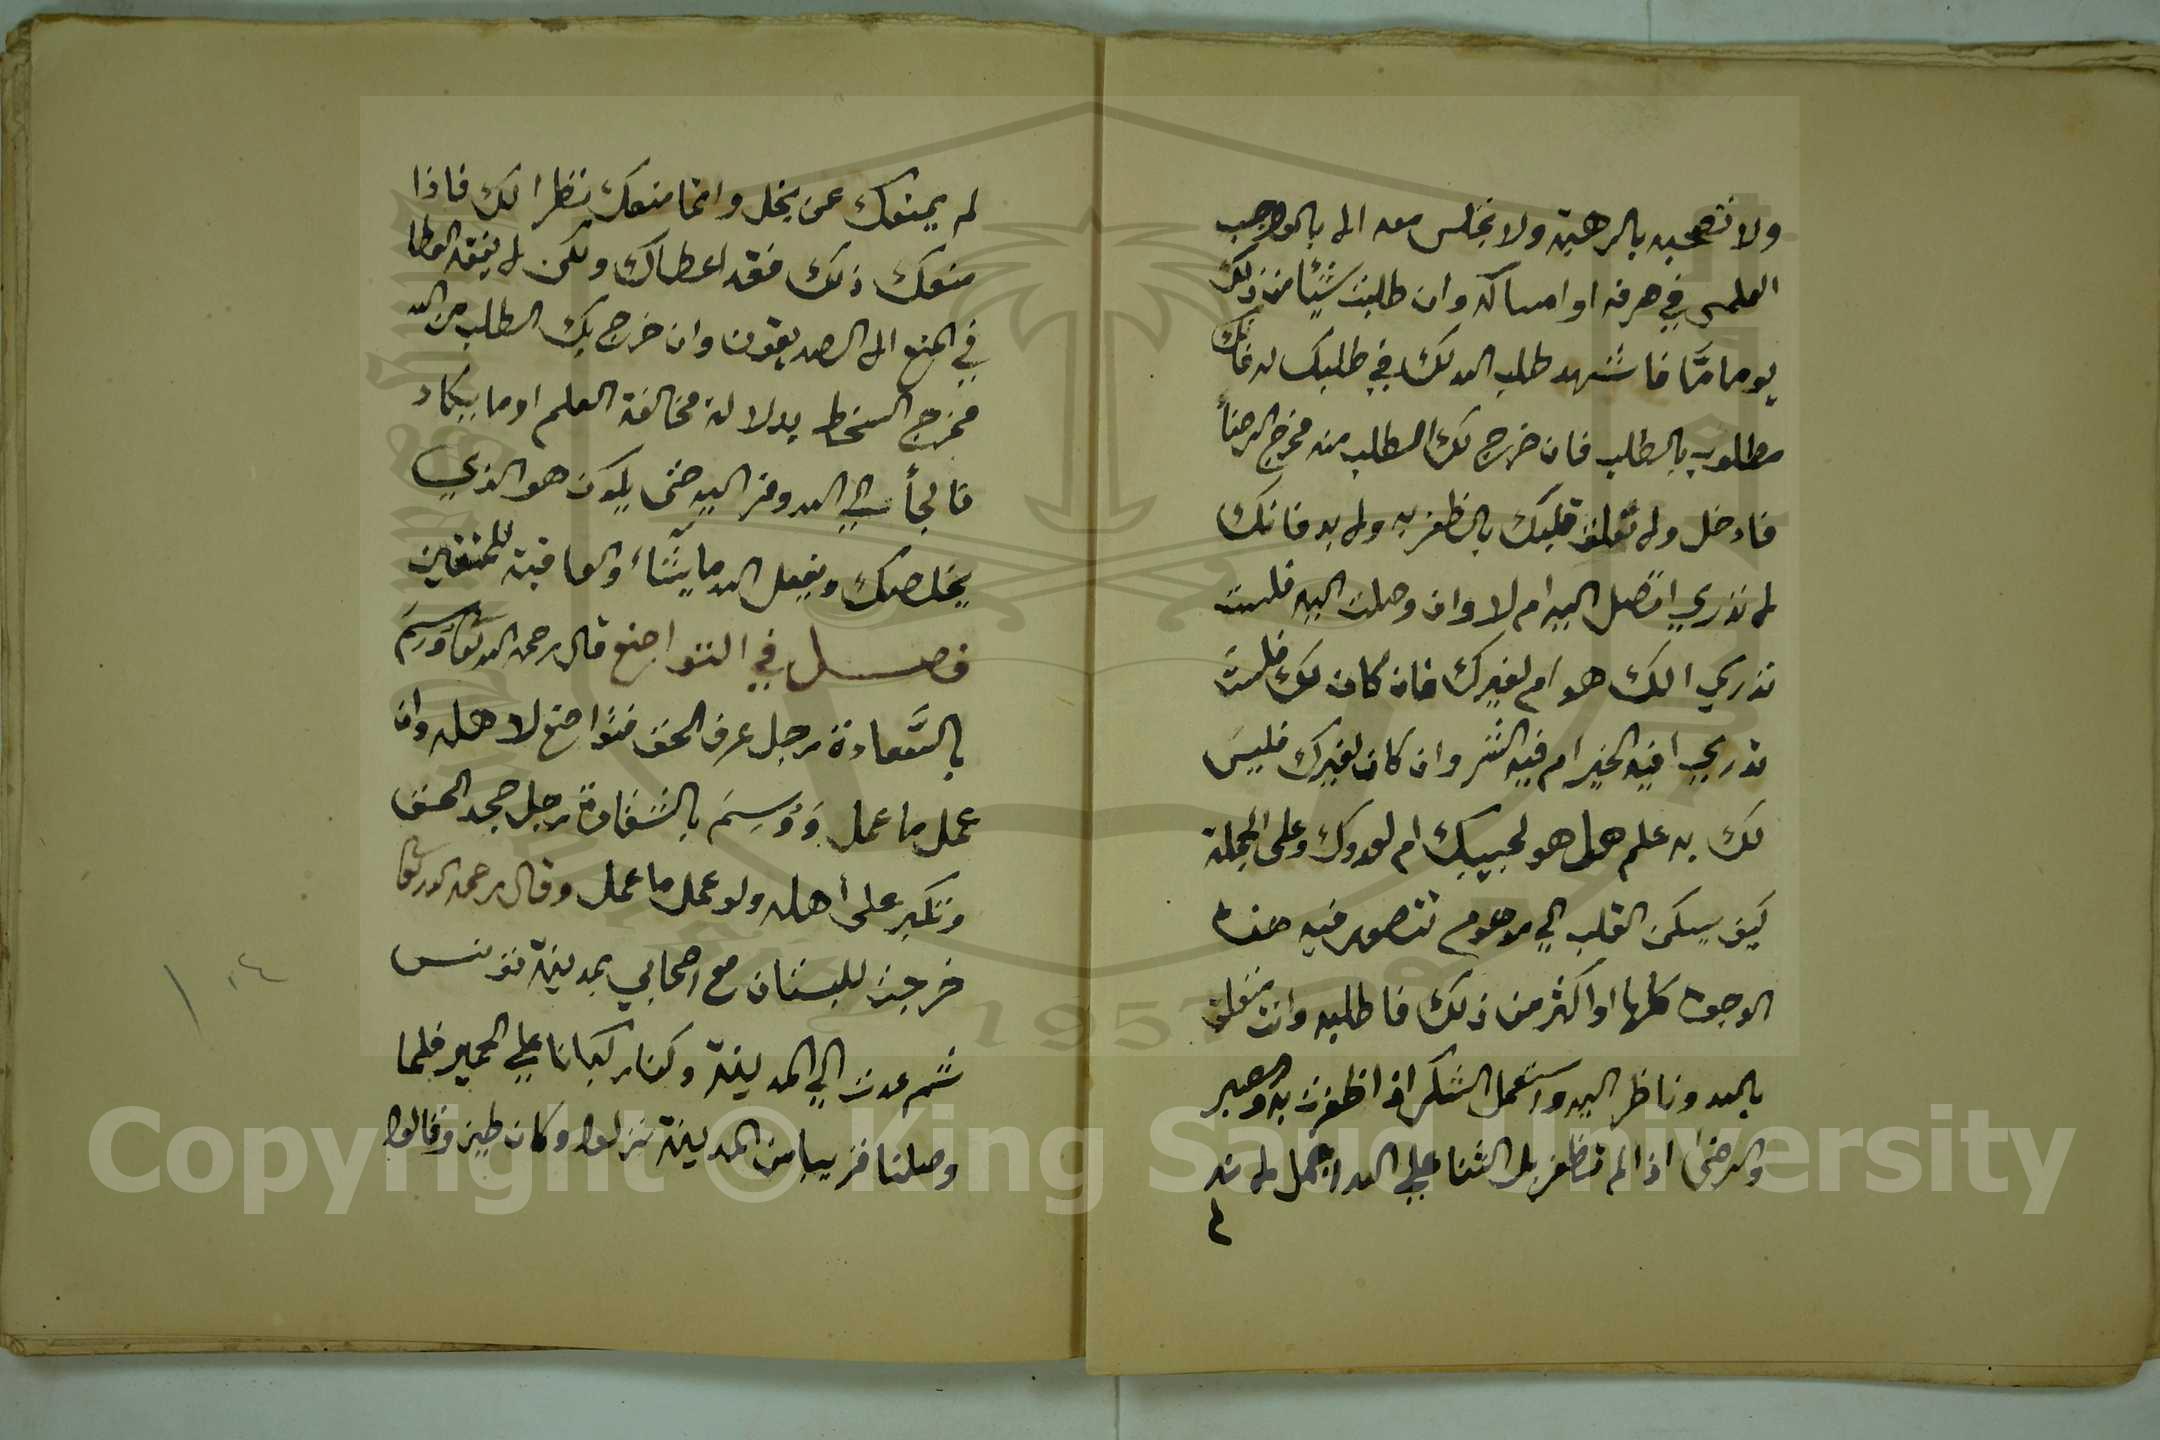 ولا تصحبه بالرهبة ولا تجلس معه الا بالواجب
العلمي في صرفه او امساكه وان طلبت شيئا من ذلك
يوما ما فاشهد طلب الله لك في طلبك له فانك
مطلوب بالطلب فان خرج لك الطلب منه مخرج الرضا
فادخل ولا تعلق قلبك بالظفر به ولا بد فانك
لا تدري اتصل اليه ام لا وان وصلت اليه فلست
تدري الك هو ام لغيرك فان كان لك فلست
تدري افيه الخير ام فيه الشر وان كان لغيرك فليس
لك به علم هل هو لحبيبك ام لعدوك وعلى الجملة
كيف يسكن القلب الي موهوم تتصور فيه هذه
الوجوه كلها او اكثر من ذلك فاطلبه وانت متعلق
بالله وناظر اليه واستعمل الشكر اذا ظفرت به والصبر
والرضى اذا لم تظفر بل الثنا على الله اجمل لانه
لم
لم يمنعك عن بخل وانما منعك نظرا لك فاذا
منعك ذلك فقد اعطاك ولكن لا يفقه العطا
في المنع الا الصديقون وان خرج بك الطلب من الله
مخرج السخط بدلالة مخالفة العلم او ما يكاد
فالجأ الي الله وفر اليه حتى يكون هو الذي
يخلصك ويفعل الله ما يشاء والعاقبة للمتقين
فصل في التواضع قال رحمه الله تعا وسم
بالسعادة رجل عرف الحق فتواضع لاهله وان
عمل ما عمل ووسم بالشقاوة رجل جحد الحق
وتكبر على أهله ولو عمل ما عمل وقال رحمه الله تعا
خرجت للبستان مع اصحابي بمدينة تونس
ثم عدت الي المدينة وكنا ركبانا علي الحمير فلما
وصلنا قريبا من المدينة نزلوا وكان طين وقالوا
١٠٤
Copyright © King Saud University
1957